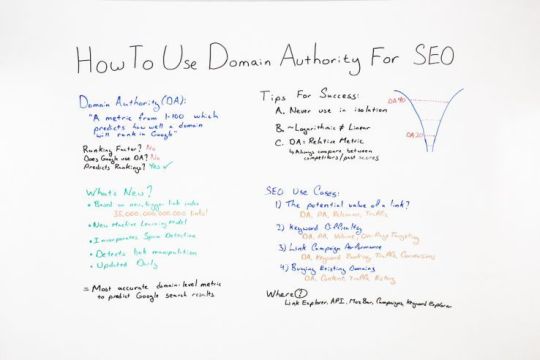 How To Use Domain Authority For SEO
Domain Authority (DA):
"A metric from 1-100 which
predicts how well a domain
will rank in Google"
Ranking Factor? No
Does Google use DA? No
Predicts Rankings? Yes ✓
What's New?
• Based on new, bigger link index
35,000,000,000,000 links!
• New Machine Learning Model
• Incorporates Spam Detection
• Detects link manipulation
• Updated Daily
= Most accurate domain-level metric
to predict Google search results
Tips For Success:
A. Never use in isolation
B. ~Logarithmic ≠ Linear
C. DA = Relative Metric
↳ Always compare between
competitors/past scores
DA 40
DA 20
SEO Use Cases:
1) The potential value of a link?
DA, PA, Relevance, Traffic
2) Keyword Difficulty
DA, PA, Volume, On-Page Targeting
3) Link Campaign Performance
DA, Keyword Ranking, Traffic, Conversions
4) Buying Existing Domains
DA, Content, Traffic, History
Where?
Link Explorer, API, MozBar, Campaigns, Keyword Explorer